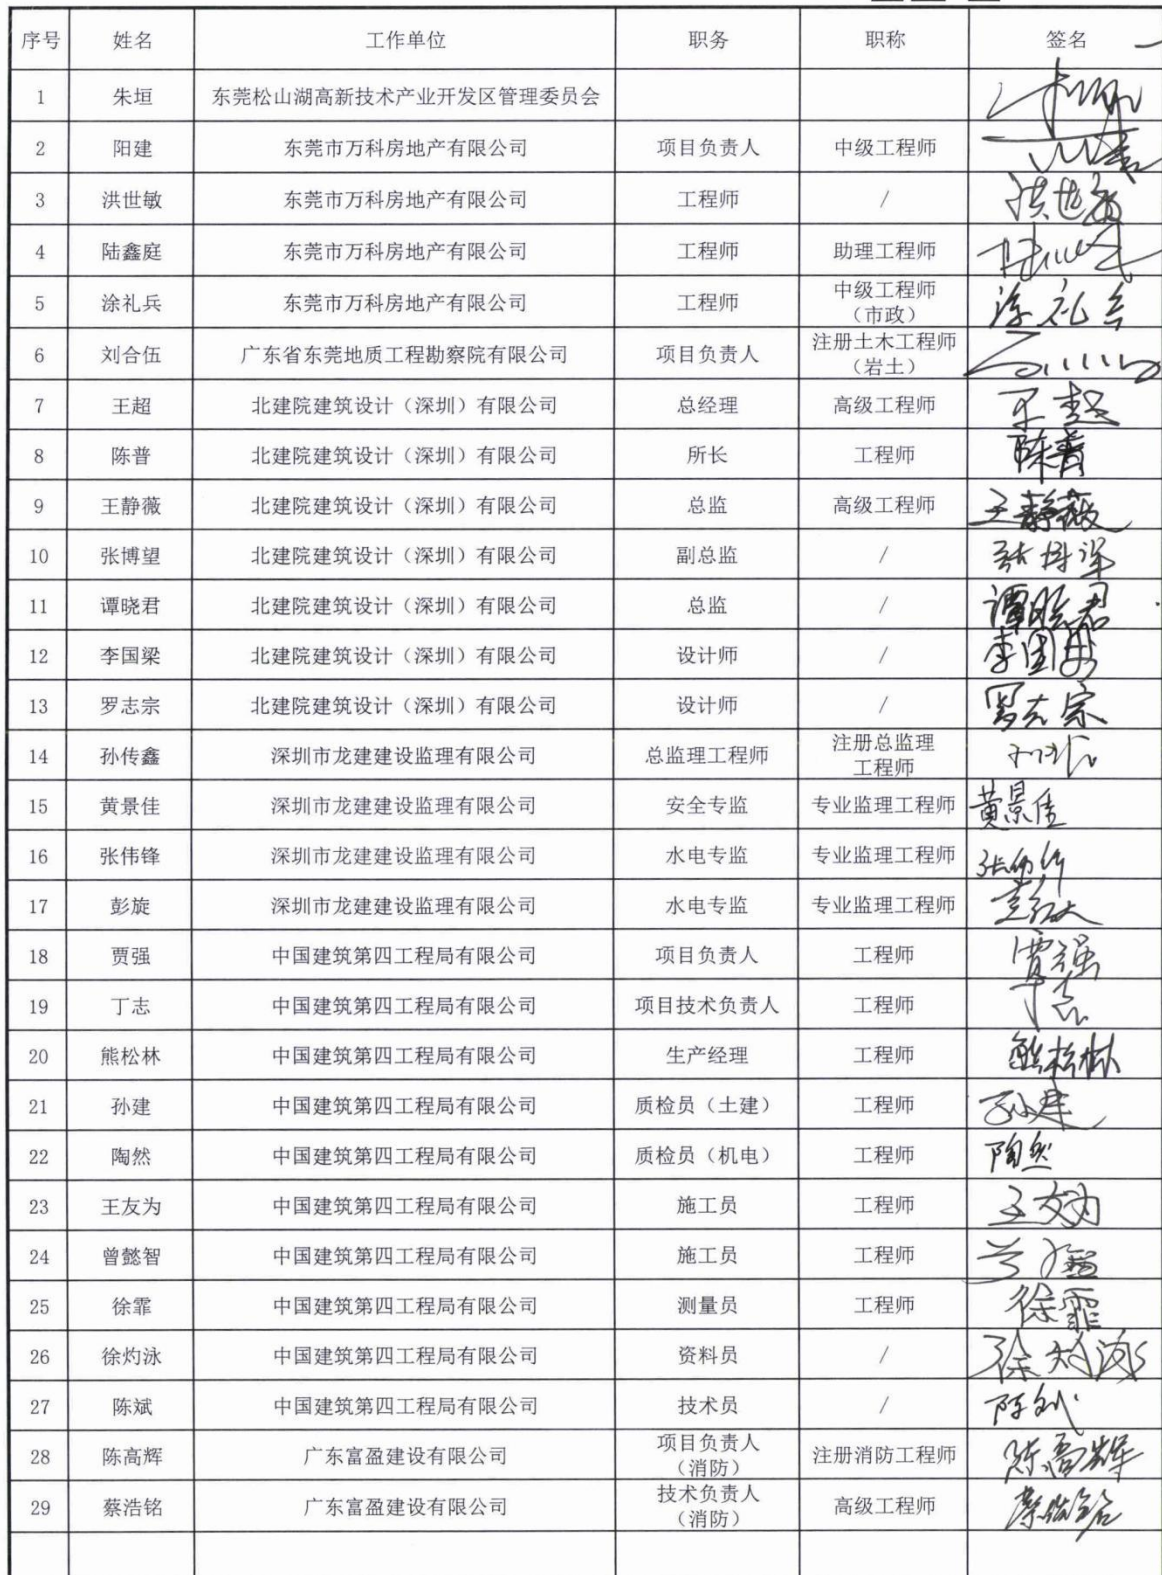 序号 姓名 工作单位 职务 职称 签名
1 朱垣 东莞松山湖高新技术产业开发区管理委员会
2 阳建 东莞市万科房地产有限公司 项目负责人 中级工程师
3 洪世敏 东莞市万科房地产有限公司 工程师 / 洪世敏
4 陆鑫庭 东莞市万科房地产有限公司 工程师 助理工程师
5 涂礼兵 东莞市万科房地产有限公司 工程师 中级工程师
（市政） 涂礼兵
6 刘合伍 广东省东莞地质工程勘察院有限公司 项目负责人 注册土木工程师
（岩土）
7 王超 北建院建筑设计（深圳）有限公司 总经理 高级工程师 王超
8 陈普 北建院建筑设计（深圳）有限公司 所长 工程师 陈普
9 王静薇 北建院建筑设计（深圳）有限公司 总监 高级工程师 王静薇
10 张博望 北建院建筑设计（深圳）有限公司 副总监 /
11 谭晓君 北建院建筑设计（深圳）有限公司 总监 / 谭晓君
12 李国梁 北建院建筑设计（深圳）有限公司 设计师 /
13 罗志宗 北建院建筑设计（深圳）有限公司 设计师 / 罗志宗
14 孙传鑫 深圳市龙建建设监理有限公司 总监理工程师 注册总监理
工程师
15 黄景佳 深圳市龙建建设监理有限公司 安全专监 专业监理工程师 黄景佳
16 张伟锋 深圳市龙建建设监理有限公司 水电专监 专业监理工程师
17 彭旋 深圳市龙建建设监理有限公司 水电专监 专业监理工程师
18 贾强 中国建筑第四工程局有限公司 项目负责人 工程师 贾强
19 丁志 中国建筑第四工程局有限公司 项目技术负责人 工程师 丁志
20 熊松林 中国建筑第四工程局有限公司 生产经理 工程师 熊松林
21 孙建 中国建筑第四工程局有限公司 质检员（土建） 工程师 孙建
22 陶然 中国建筑第四工程局有限公司 质检员（机电） 工程师 陶然
23 王友为 中国建筑第四工程局有限公司 施工员 工程师 王友为
24 曾懿智 中国建筑第四工程局有限公司 施工员 工程师
25 徐霏 中国建筑第四工程局有限公司 测量员 工程师 徐霏
26 徐灼泳 中国建筑第四工程局有限公司 资料员 / 徐灼泳
27 陈斌 中国建筑第四工程局有限公司 技术员 / 陈斌
28 陈高辉 广东富盈建设有限公司 项目负责人
（消防） 注册消防工程师 陈高辉
29 蔡浩铭 广东富盈建设有限公司 技术负责人
（消防） 高级工程师 蔡浩铭